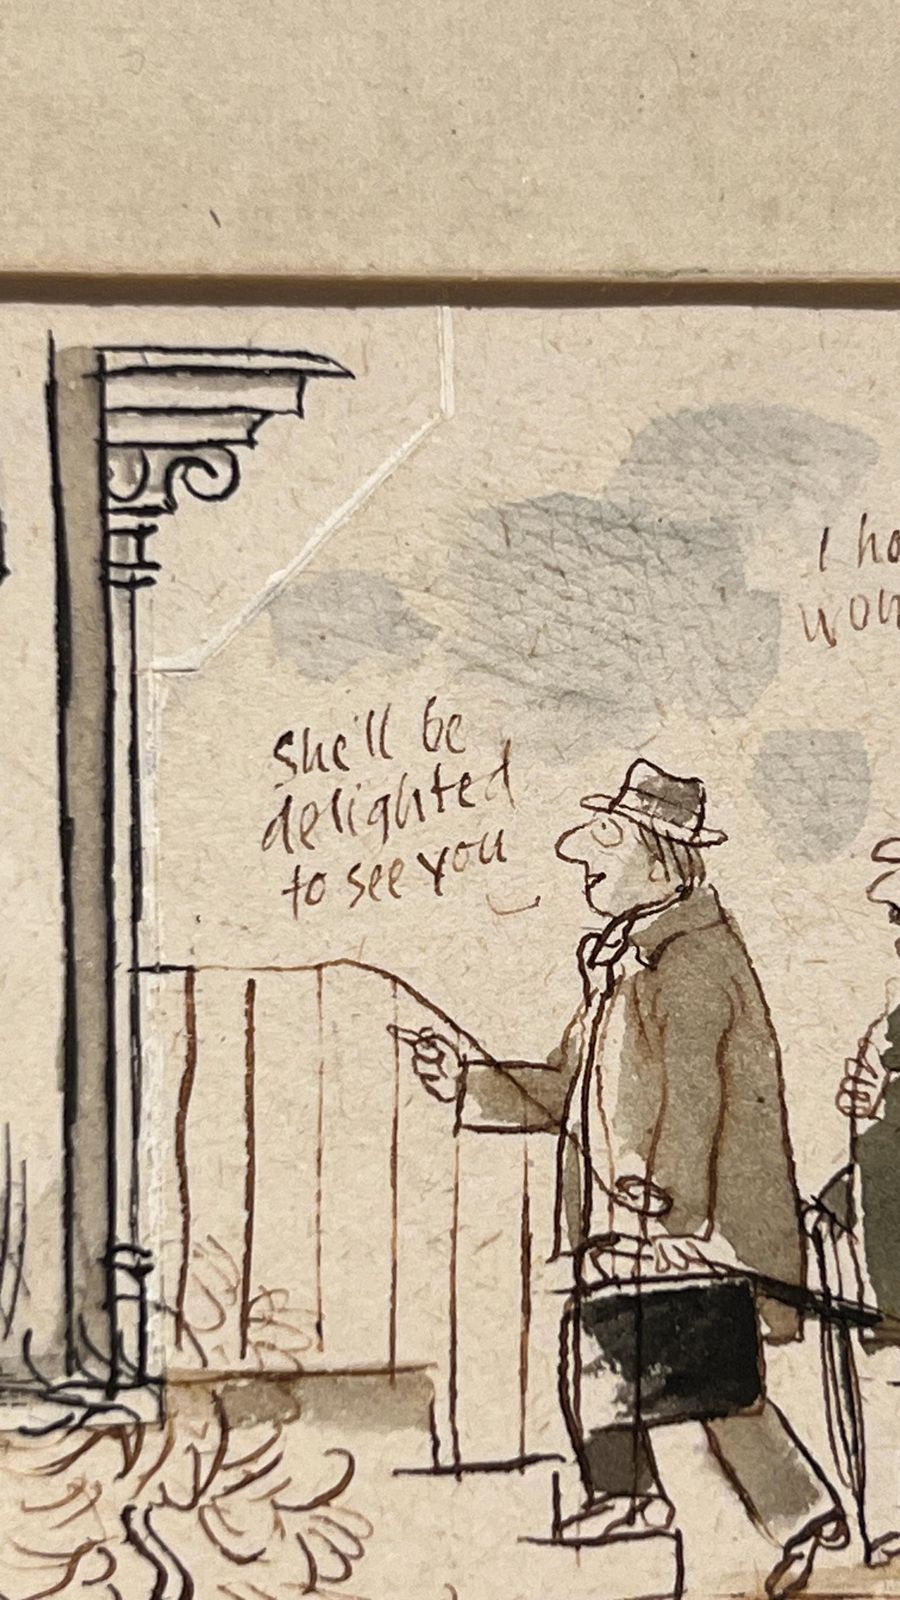 She'll be
delighted
to see you
I